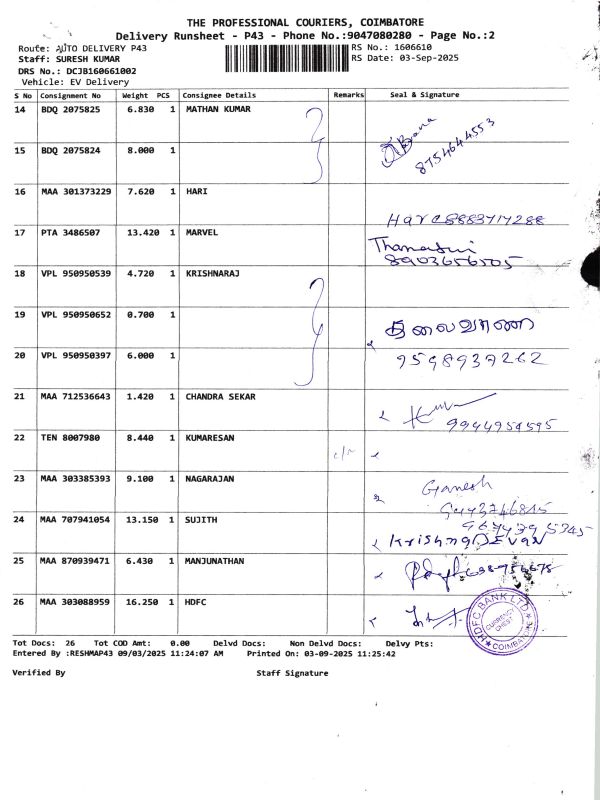 THE PROFESSIONAL COURIERS, COIMBATORE
Delivery Runsheet - P43 - Phone No.:9047080280 - Page No.:2
Route: AUTO DELIVERY P43
RS No.: 1606610
Staff: SURESH KUMAR
RS Date: 03-Sep-2025
DRS No.: DCJB160661002
Vehicle: EV Delivery
S No Consignment No Weight PCS Consignee Details Remarks Seal & Signature
14 BDQ 2075825 6.830 1 MATHAN KUMAR
15 BDQ 2075824 8.000 1
8754644553
16 MAA 301373229 7.620 1 HARI
Hari 8883717288
17 PTA 3486507 13.420 1 MARVEL
8903656505
18 VPL 950950539 4.720 1 KRISHNARAJ
19 VPL 950950652 0.700 1
கலைவாணி
20 VPL 950950397 6.000 1
9598937262
21 MAA 712536643 1.420 1 CHANDRA SEKAR
9944954595
22 TEN 8007980 8.440 1 KUMARESAN
23 MAA 303385393 9.100 1 NAGARAJAN
Ganesh
24 MAA 707941054 13.150 1 SUJITH
25 MAA 870939471 6.430 1 MANJUNATHAN
26 MAA 303088959 16.250 1 HDFC
HDFC BANK LTD
CURRENCY
CHEST
COIMBATORE
Tot Docs: 26 Tot COD Amt: 0.00 Delvd Docs: Non Delvd Docs: Delvy Pts:
Entered By :RESHMAP43 09/03/2025 11:24:07 AM Printed On: 03-09-2025 11:25:42
Verified By Staff Signature